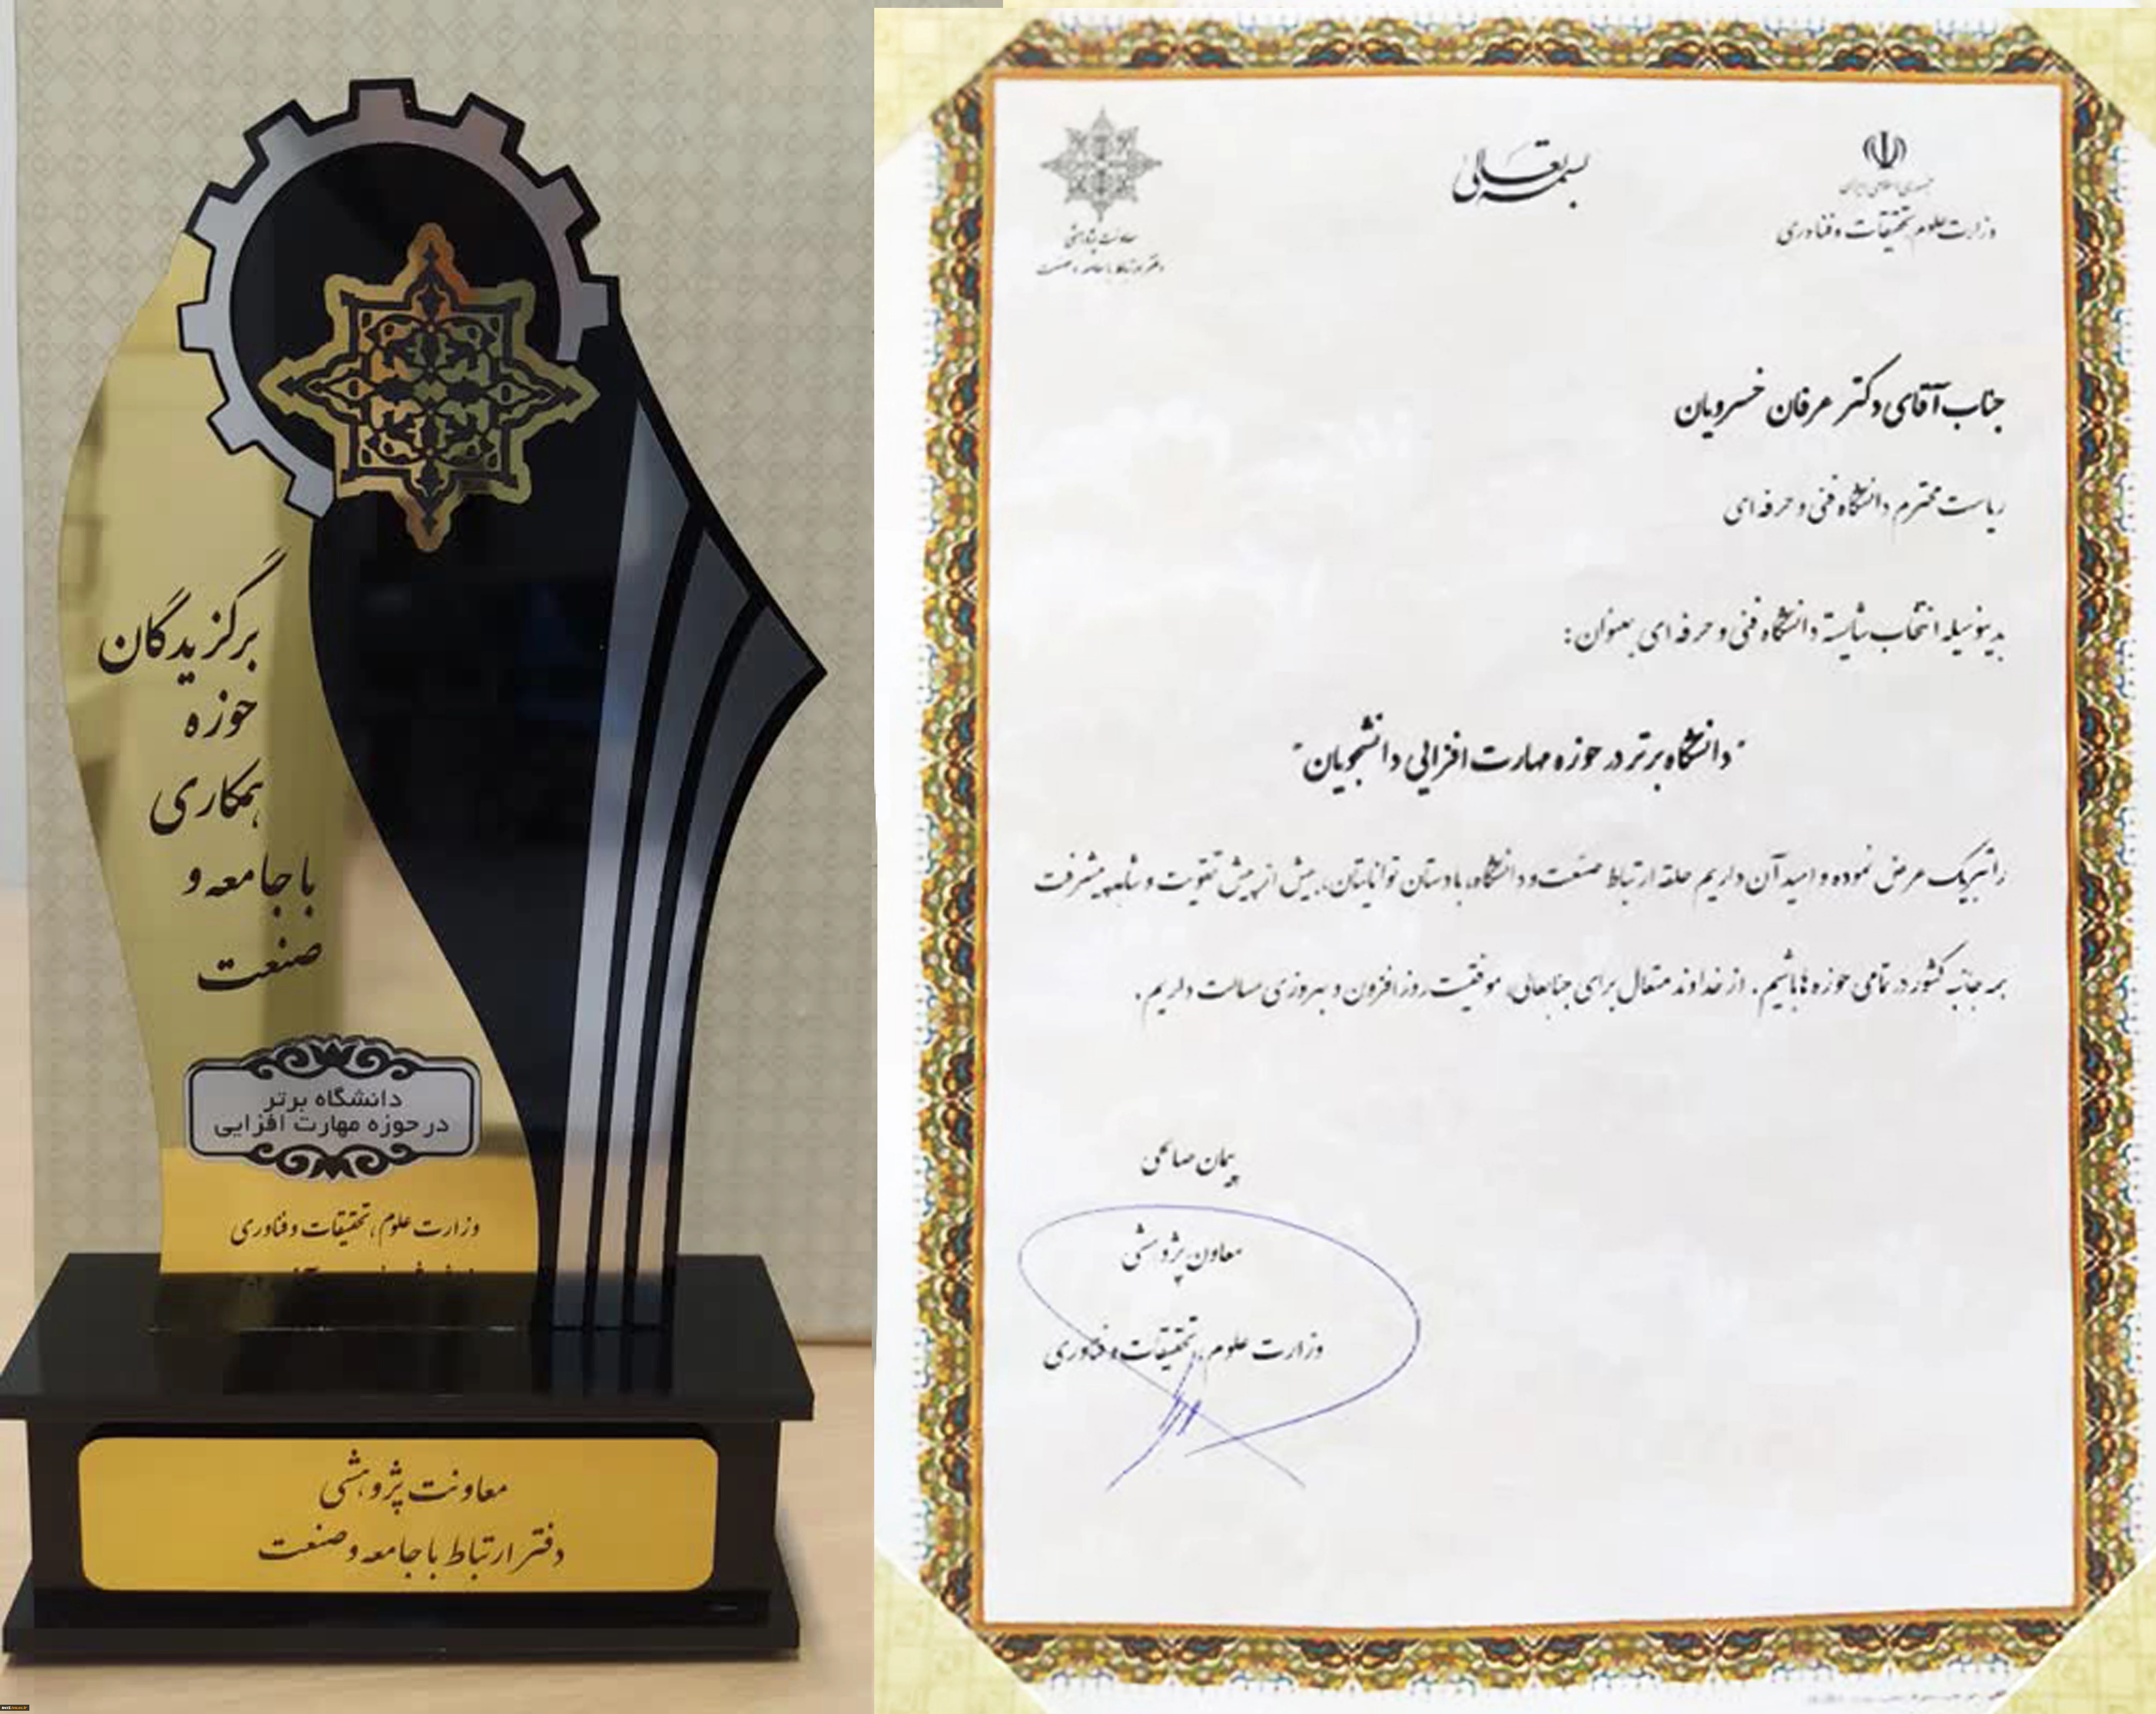 برگزیدگان
حوزه
همکاری
با جامعه و
صنعت
دانشگاه برتر
در حوزه مهارت افزایی
وزارت علوم، تحقیقات و فناوری
معاونت پژوهشی
دفتر ارتباط با جامعه و صنعت
بسمه تعالی
جمهوری اسلامی ایران
وزارت علوم تحقیقات و فناوری
معاونت پژوهشی
دفتر ارتباط با جامعه و صنعت
جناب آقای دکتر عرفان خسرویان
ریاست محترم دانشگاه فنی و حرفه ای
بدینوسیله انتخاب شایسته دانشگاه فنی و حرفه ای بعنوان:
"دانشگاه برتر در حوزه مهارت افزایی دانشجویان"
را تبریک عرض نموده و امید آن داریم حلقه ارتباط صنعت و دانشگاه، با دستان توانایتان، بیش از پیش تقویت و شاهد پیشرفت
همه جانبه کشور در تمامی حوزه ها باشیم. از خداوند متعال برای جنابعالی، موفقیت روز افزون و بهروزی مسالت داریم.
پیمان صالحی
معاون پژوهشی
وزارت علوم، تحقیقات و فناوری